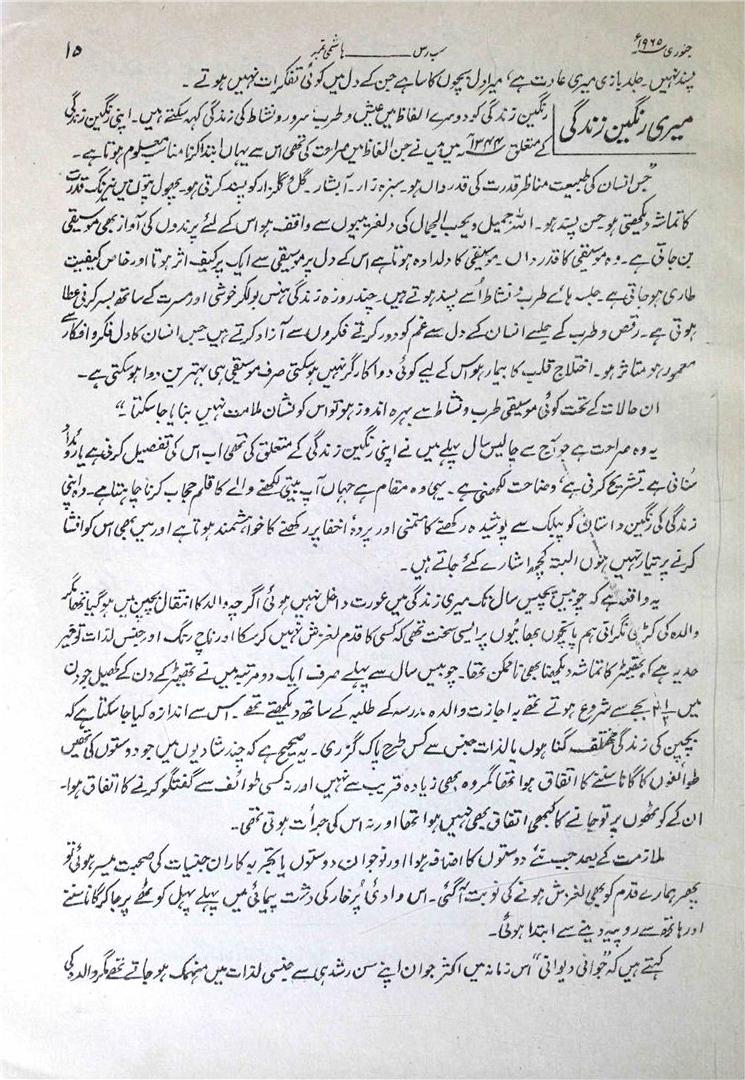 جنوری ۱۹۶۵ء سب رس ہاشمی نمبر ۱۵
پسند نہیں۔ جلد بازی میری عادت ہے، میرا دل بچوں کا سا ہے جن کے دل میں کوئی تفکرات نہیں ہوتے ۔
میری رنگین زندگی
رنگین زندگی کو دوسرے الفاظ میں عیش و طرب، سرور و نشاط کی زندگی کہہ سکتے ہیں۔ اپنی رنگین زندگی
کے متعلق ۱۳۴۴ھ میں میں نے جن الفاظ میں صراحت کی تھی اس سے یہاں ابتدا کرنا مناسب معلوم ہوتا ہے۔
"جس انسان کی طبیعت مناظر قدرت کی قدر داں ہو۔ سبزہ زار۔ آبشار۔ گل و گلزار کو پسند کرتی ہو۔ پھول پتوں میں نیرنگ قدرت
کا تماشہ دیکھتی ہو۔ حسن پسند ہو۔ اللہ جمیل و یحب الجمال کی دلفریبیوں سے واقف ہو اس کے لئے پرندوں کی آواز بھی موسیقی
بن جاتی ہے۔ وہ موسیقی کا قدر داں۔ موسیقی کا دلدادہ ہوتا ہے اس کے دل پر موسیقی سے ایک پرکیف اثر ہوتا اور خاص کیفیت
طاری ہو جاتی ہے۔ جلسہ ہائے طرب و نشاط اُسے پسند ہوتے ہیں۔ چند روزہ زندگی ہنس بول کر خوشی اور مسرت کے ساتھ بسر کرنی عطا
ہوتی ہے۔ رقص و طرب کے جلسے انسان کے دل سے غم کو دور کرتے فکروں سے آزاد کرتے ہیں جس انسان کا دل فکر و افکار سے
معمور ہو متاثر ہو۔ اختلاج قلب کا بیمار ہو اس کے لیے کوئی دوا کارگر نہیں ہو سکتی صرف موسیقی ہی بہترین دوا ہو سکتی ہے۔
ان حالات کے تحت کوئی موسیقی طرب و نشاط سے بہرہ اندوز ہو تو اس کو نشان ملامت نہیں بنایا جا سکتا ۔"
یہ وہ صراحت ہے جو آج سے چالیس سال پہلے میں نے اپنی رنگین زندگی کے متعلق کی تھی اب اس کی تفصیل کرنی ہے یا روئداد
سُنانی ہے تشریح کرنی ہے، وضاحت لکھنی ہے۔ یہی وہ مقام ہے جہاں آپ بیتی لکھنے والے کا قلم حجاب کرنا چاہتا ہے۔ وہ اپنی
زندگی کی رنگین داستان کو پبلک سے پوشیدہ رکھنے کا متمنی اور پردۂ اخفا پر رکھنے کا خواہشمند ہوتا ہے اور میں بھی اس کو افشا
کرنے پر تیار نہیں ہوں البتہ کچھ اشارے کئے جاتے ہیں۔
یہ واقعہ ہے کہ چوبیس پچیس سال تک میری زندگی میں عورت داخل نہیں ہوئی اگرچہ والد کا انتقال بچپن میں ہو گیا تھا مگر
والدہ کی کڑی نگرانی ہم پانچوں بھائیوں پر ایسی سخت تھی کہ کسی کا قدم لغزش نہیں کر سکا اور ناچ رنگ اور جنسی لذات تو خیر
حد یہ ہے کہ تھیٹر کا تماشہ دیکھنا بھی نا ممکن تھا۔ چوبیس سال سے پہلے صرف ایک دو مرتبہ میں نے تھیٹر کے دن کے کھیل جو دن
میں ۲½ بجے سے شروع ہوتے تھے بہ اجازت والدہ مدرسہ کے طلبہ کے ساتھ دیکھتے تھے۔ اس سے اندازہ کیا جا سکتا ہے کہ
بچپن کی زندگی مختلف گناہوں یا لذات جنسی سے کس طرح پاک گزری۔ یہ صحیح ہے کہ چند شادیوں میں جو دوستوں کی تھیں
طوائفوں کا گانا سننے کا اتفاق ہوا تھا مگر وہ بھی زیادہ قریب سے نہیں اور نہ کسی طوائف سے گفتگو کرنے کا اتفاق ہوا۔
ان کے کوٹھوں پر تو جانے کا کبھی اتفاق بھی نہیں ہوا تھا اور نہ اس کی جرأت ہوتی تھی۔
ملازمت کے بعد جب نئے دوستوں کا اضافہ ہوا اور نوجوان دوستوں یا تجربہ کاران جنسیات کی صحبت میسر ہوئی تو
پھر ہمارے قدم کو بھی لغزش ہونے کی نوبت آگئی۔ اس وادیٔ پُر خار کی دشت پیمائی میں پہلے پہل کوٹھے پر جا کر گانا سننے
اور ہاتھ سے روپیہ دینے سے ابتدا ہوئی۔
کہتے ہیں کہ "جوانی دیوانی" اس زمانہ میں اکثر جوان اپنے سن رشد ہی سے جنسی لذات میں منہمک ہو جاتے تھے مگر والدہ کی